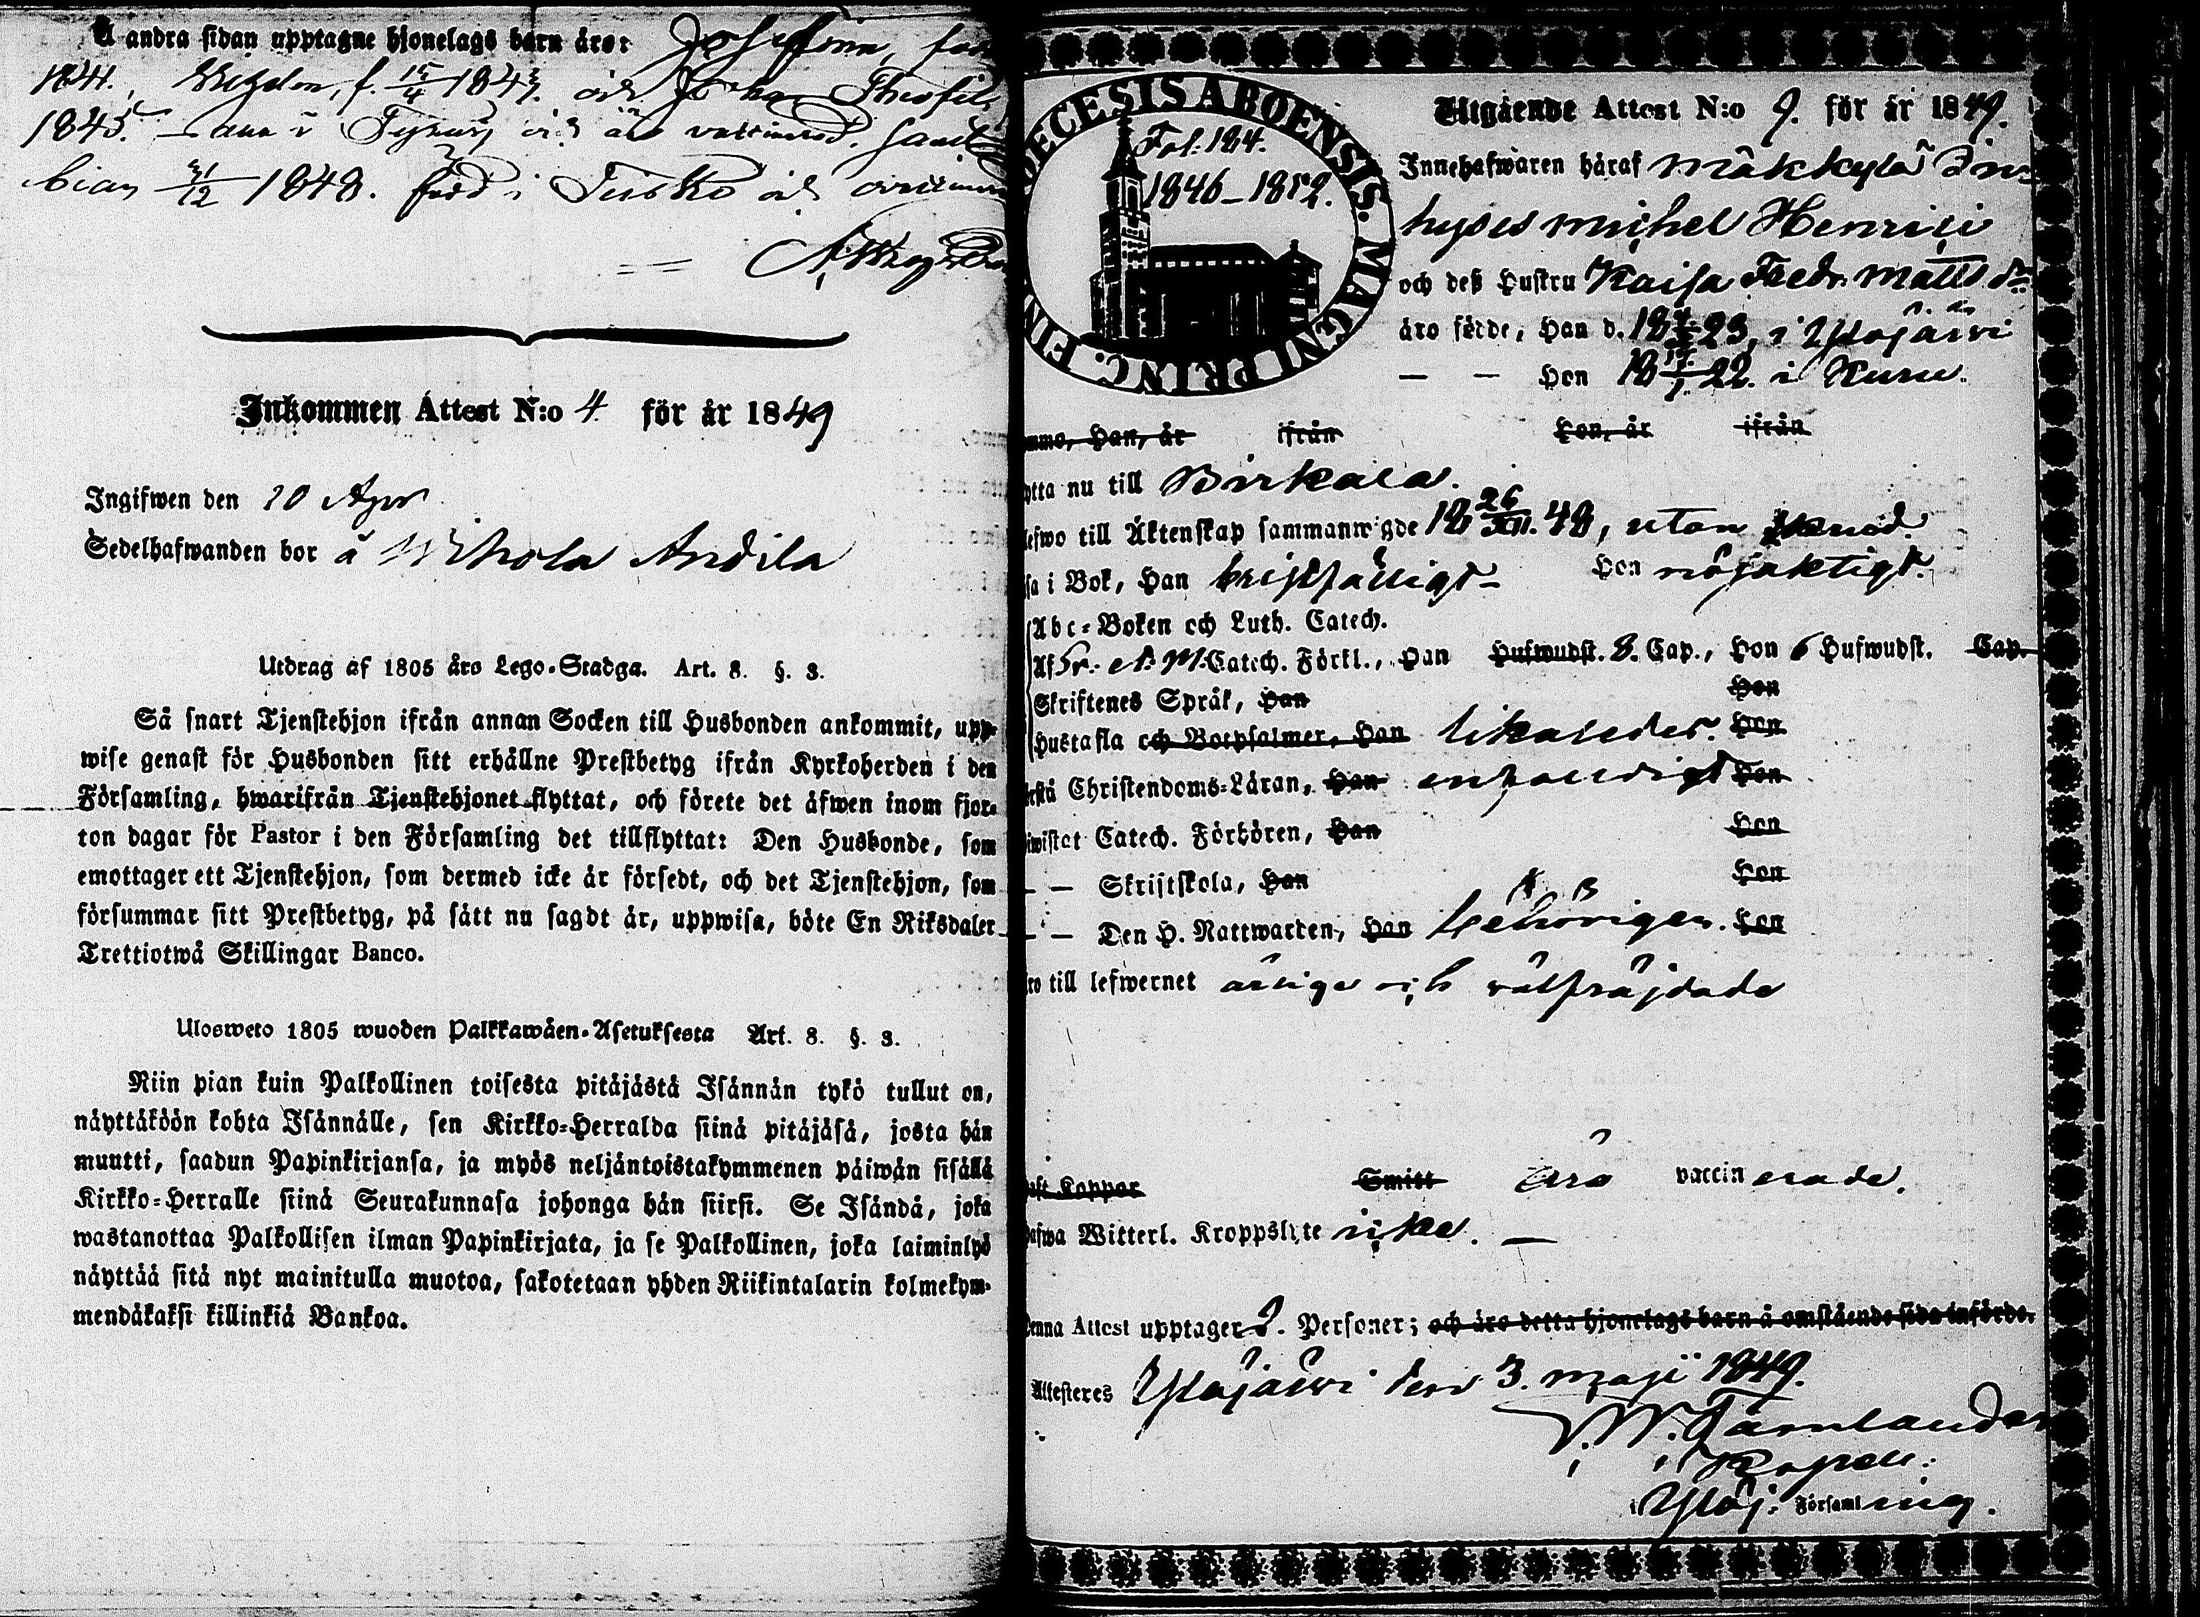 å andra sidan upptagne hjonelags barn äro: Josefina,
1841., f. 15/4 1843. och Johan Theofil,
1845. alla i och äro vaccinerad. samt
31/12 1848. född i Teisko och
Inkommen Attest N:o 4 för år 1849
Ingifwen den 10 Apr
Sedelhafwanden bor å Wihola Andila
Utdrag af 1805 års Lego-Stadga. Art. 8. §. 3.
Så snart Tjenstehjon ifrån annan Socken till Husbonden ankommit, upp-
wise genast för Husbonden sitt erhållne Prestbetyg ifrån Kyrkoherden i den
Församling, hwarifrån Tjenstehjonet flyttat, och förete det äfwen inom fjor-
ton dagar för Pastor i den Församling det tillflyttat: Den Husbonde, som
emottager ett Tjenstehjon, som dermed icke är försedt, och det Tjenstehjon, som
försummar sitt Prestbetyg, på sätt nu sagdt är, uppwisa, böte En Riksdaler
Trettiotwå Skillingar Banco.
Ulosweto 1805 wuoden Palkkawäen-Asetuksesta Art. 8. §. 3.
Niin pian kuin Palkollinen toisesta pitäjästä Isännän tykö tullut on,
näyttäköön kohta Isännälle, sen Kirkko-Herralda siinä pitäjäsä, josta hän
muutti, saadun Papinkirjansa, ja myös neljäntoistakymmenen päiwän sisällä
Kirkko-Herralle siinä Seurakunnasa johonga hän siirsi. Se Isändä, joka
wastanottaa Palkollisen ilman Papinkirjata, ja se Palkollinen, joka laiminlyö
näyttää sitä nyt mainitulla muotoa, sakotetaan yhden Riikintalarin kolmekym-
mendäkaksi killinkiä Bankoa.
DECESIS ABOENSIS. MAGNI PRINC. FIN
Fol: 184.
1846-1852.
Utgående Attest N:o 9. för år 1849.
Innehafwaren häraf Mäkkylä In-
hyses Michel Henrici
och deß Hustru Kaisa Fredr. Matts dr
äro födde, Han d. 18 23, i Ylöjärvi
— — Hon 18 17/1 22. i Kuru.
Han, år ifrån Hon, år ifrån
ytta nu till Birkala.
lefwo till Äktenskap sammanwigde 18 26/XII. 48, utan
sa i Bok, Han bristfälligt Hon nöjaktigt.
Abc-Boken och Luth. Catech.
Af Catech. Förkl., Han Hufwudst. 8. Cap., Hon 6 Hufwudst. Cap.
Skriftenes Språk, Han Hon
Hustafla och Botpsalmer, Han likaledes. Hon
Christendoms-Läran, Han enfaldigt Hon
iwistat Catech. Förhören, Han Hon
— — Skriftskola, Han Hon
— — Den H. Nattwarden, Han behörigen. Hon
ro till lefwernet ärliga och välfräjdade
Koppor Smitt äro vaccinerade.
afwa Witterl. Kroppslyte icke. —
Denna Attest upptager 2. Personer; och äro detta hjonelags barn å omstående sida införde.
Attesteres Ylöjärwi den 3. Maji 1849.
W. Törnlander
Kapell:
i Ylöj. Församling.